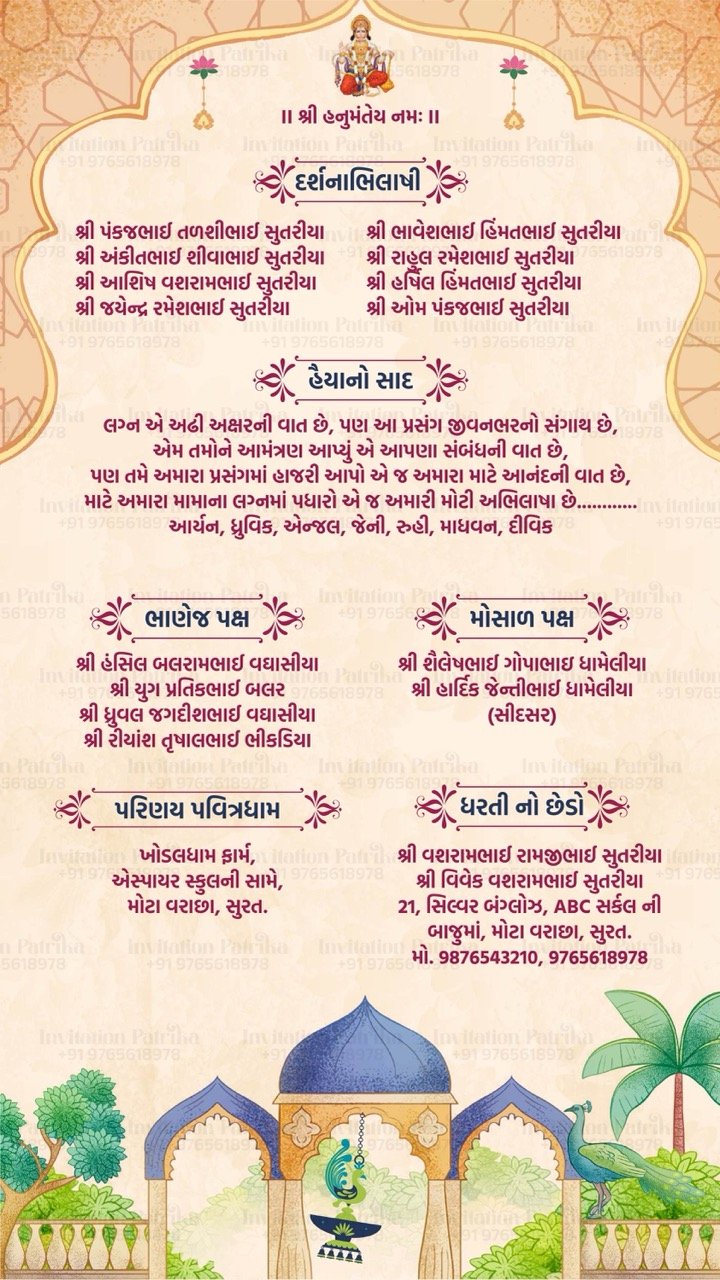 ॥ શ્રી હનુમંતેય નમઃ ॥
દર્શનાભિલાષી
શ્રી પંકજભાઈ તળશીભાઈ સુતરીયા
શ્રી અંકીતભાઈ શીવાભાઈ સુતરીયા
શ્રી આશિષ વશરામભાઈ સુતરીયા
શ્રી જયેન્દ્ર રમેશભાઈ સુતરીયા
શ્રી ભાવેશભાઈ હિંમતભાઈ સુતરીયા
શ્રી રાહુલ રમેશભાઈ સુતરીયા
શ્રી હર્ષિલ હિંમતભાઈ સુતરીયા
શ્રી ઓમ પંકજભાઈ સુતરીયા
હૈયાનો સાદ
લગ્ન એ અઢી અક્ષરની વાત છે, પણ આ પ્રસંગ જીવનભરનો સંગાથ છે,
એમ તમોને આમંત્રણ આપ્યું એ આપણા સંબંધની વાત છે,
પણ તમે અમારા પ્રસંગમાં હાજરી આપો એ જ અમારા માટે આનંદની વાત છે,
માટે અમારા મામાના લગ્નમાં પધારો એ જ અમારી મોટી અભિલાષા છે............
આર્યન, ધ્રુવિક, એન્જલ, જેની, રુહી, માધવન, દીવિક
ભાણેજ પક્ષ
શ્રી હંસિલ બલરામભાઈ વઘાસીયા
શ્રી યુગ પ્રતિકભાઈ બલર
શ્રી ધ્રુવલ જગદીશભાઈ વઘાસીયા
શ્રી રીયાંશ તૃષાલભાઈ ભીકડિયા
મોસાળ પક્ષ
શ્રી શૈલેષભાઈ ગોપાભાઇ ધામેલીયા
શ્રી હાર્દિક જેન્તીભાઈ ધામેલીયા
(સીદસર)
પરિણય પવિત્રધામ
ખોડલધામ ફાર્મ,
એસ્પાયર સ્કુલની સામે,
મોટા વરાછા, સુરત.
ધરતી નો છેડો
શ્રી વશરામભાઈ રામજીભાઈ સુતરીયા
શ્રી વિવેક વશરામભાઈ સુતરીયા
21, સિલ્વર બંગ્લોઝ, ABC સર્કલ ની
બાજુમાં, મોટા વરાછા, સુરત.
મો. 9876543210, 9765618978
Invitation Patrika
+91 9765618978